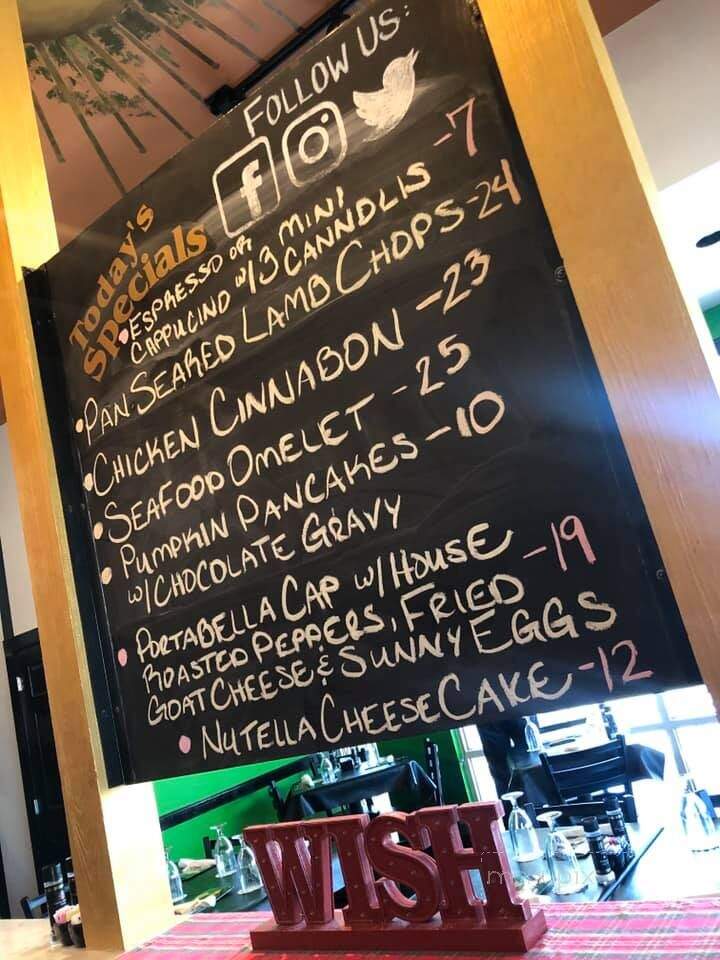 FOLLOW US:
Today's
Specials
• ESPRESSO OR MINI
CAPPUCINO W/3 CANNOLIS -7
• PAN SEARED LAMB CHOPS-24
• CHICKEN CINNABON -23
• SEAFOOD OMELET -25
• PUMPKIN PANCAKES -10
W/ CHOCOLATE GRAVY
• PORTABELLA CAP W/ HOUSE
ROASTED PEPPERS, FRIED -19
GOAT CHEESE & SUNNY EGGS
• NUTELLA CHEESE CAKE -12
WISH